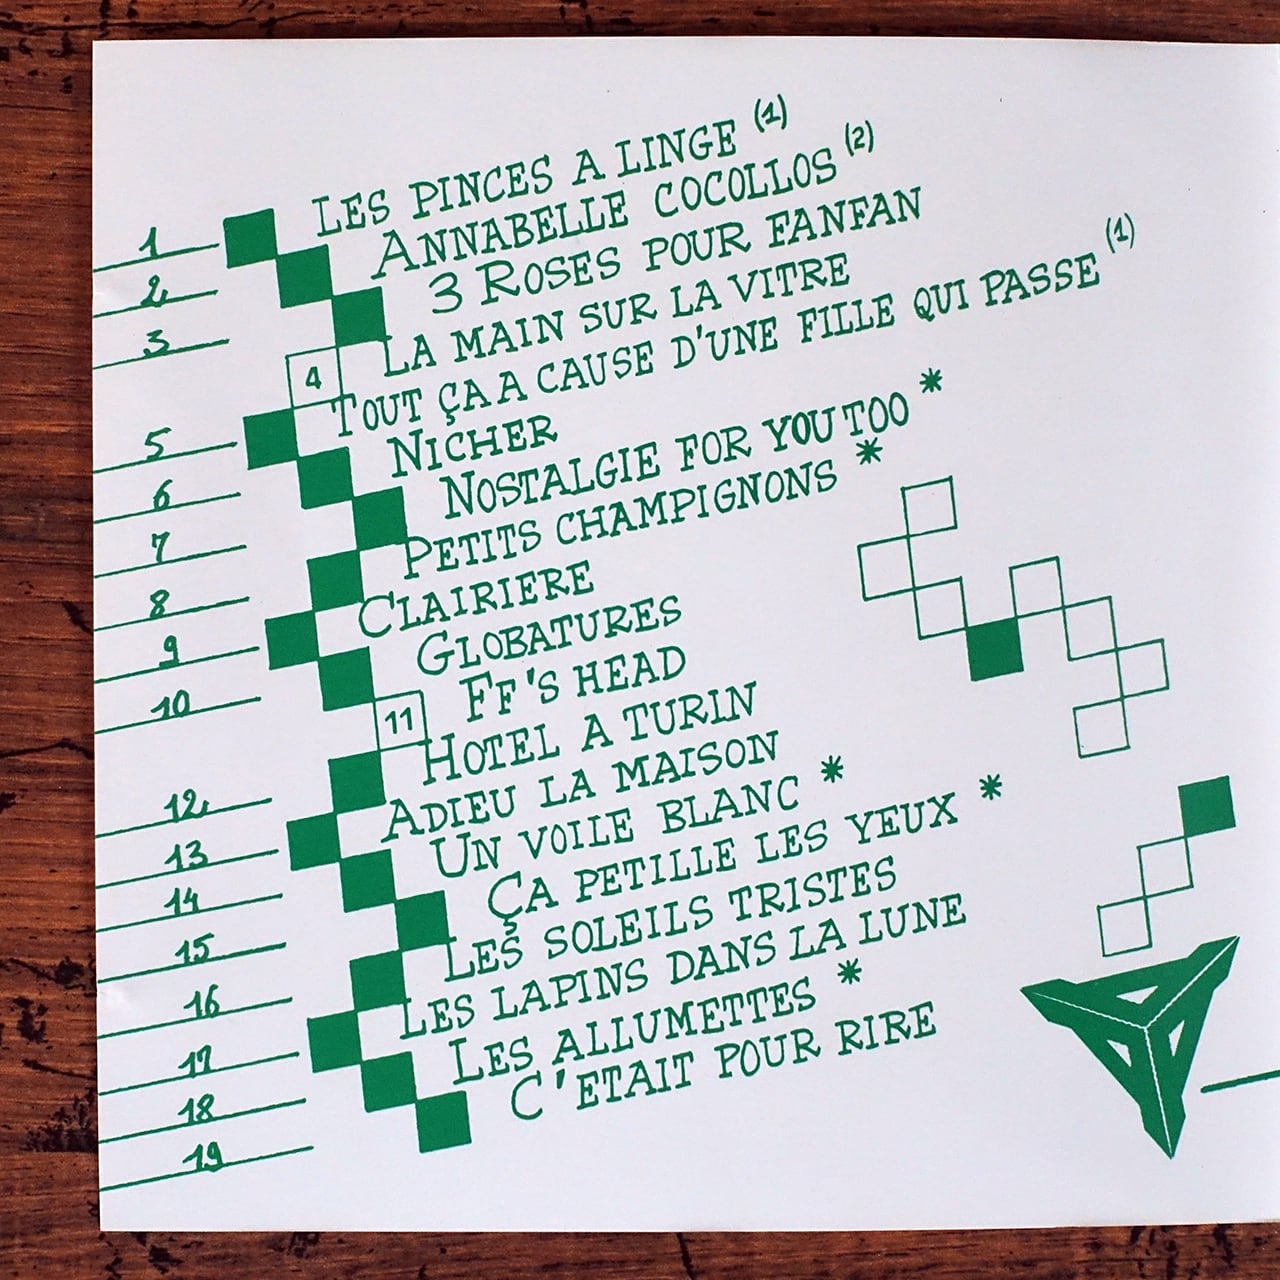 1 LES PINCES A LINGE (1)
2 ANNABELLE COCOLLOS (2)
3 3 ROSES POUR FANFAN
4 LA MAIN SUR LA VITRE
5 TOUT ÇA A CAUSE D'UNE FILLE QUI PASSE (1)
6 NICHER
7 NOSTALGIE FOR YOU TOO *
8 PETITS CHAMPIGNONS *
9 CLAIRIERE
10 GLOBATURES
11 FF'S HEAD
12 HOTEL A TURIN
13 ADIEU LA MAISON
14 UN VOILE BLANC *
15 ÇA PETILLE LES YEUX *
16 LES SOLEILS TRISTES
17 LES LAPINS DANS LA LUNE
18 LES ALLUMETTES *
19 C'ETAIT POUR RIRE